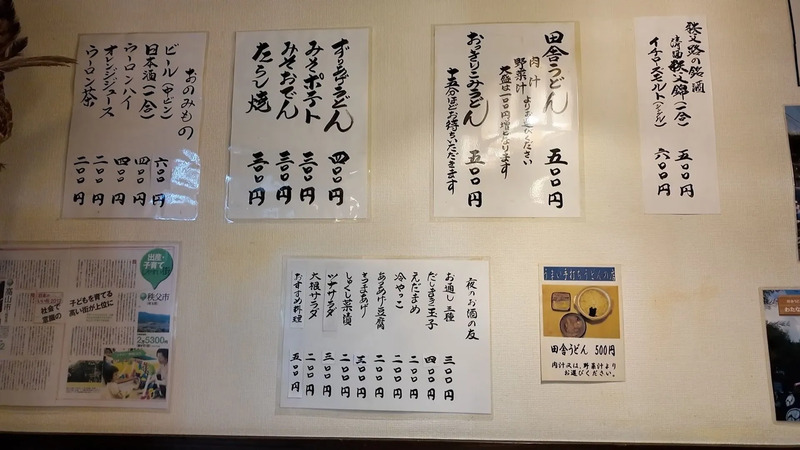 秩父路の銘酒
秩父錦(一合) 五〇〇円
イチローズモルト(シングル) 六〇〇円
田舎うどん 五〇〇円
肉汁
野菜汁 よりお選びください
大盛は一〇〇円増となります
おっきりこみうどん 五〇〇円
十五分ほどお待ちいただきます
ずりあげうどん 四〇〇円
みそポテト 三〇〇円
みそおでん 三〇〇円
たらし焼 三〇〇円
おのみもの
ビール(中ビン) 六〇〇円
日本酒(一合) 四〇〇円
ウーロンハイ 四〇〇円
オレンジジュース 二〇〇円
ウーロン茶 二〇〇円
出産・
子育て
秩父市
子どもを育てる
高い街が上位に
社会で
意識の
5300
夜のお酒の友
お通し三種 三〇〇円
だしまき玉子 四〇〇円
えだまめ 二〇〇円
冷やっこ 二〇〇円
あげあげ豆腐
さつまあげ 三〇〇円
しゃくし菜漬 二〇〇円
ツナサラダ 三〇〇円
大根サラダ 二〇〇円
おすすめ料理 五〇〇円
うまい手打ちうどんの店
田舎うどん 500円
肉汁又は、野菜汁より
お選びください。